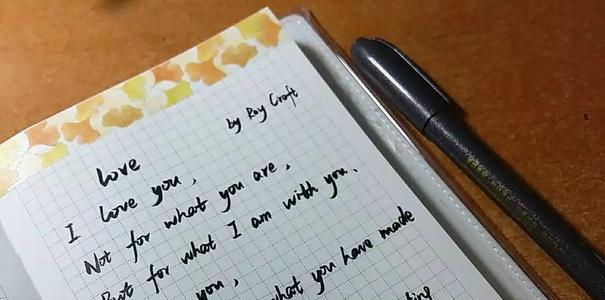 Love
by Roy Croft
I love you,
Not for what you are,
But for what I am with you.
you,
what you have made